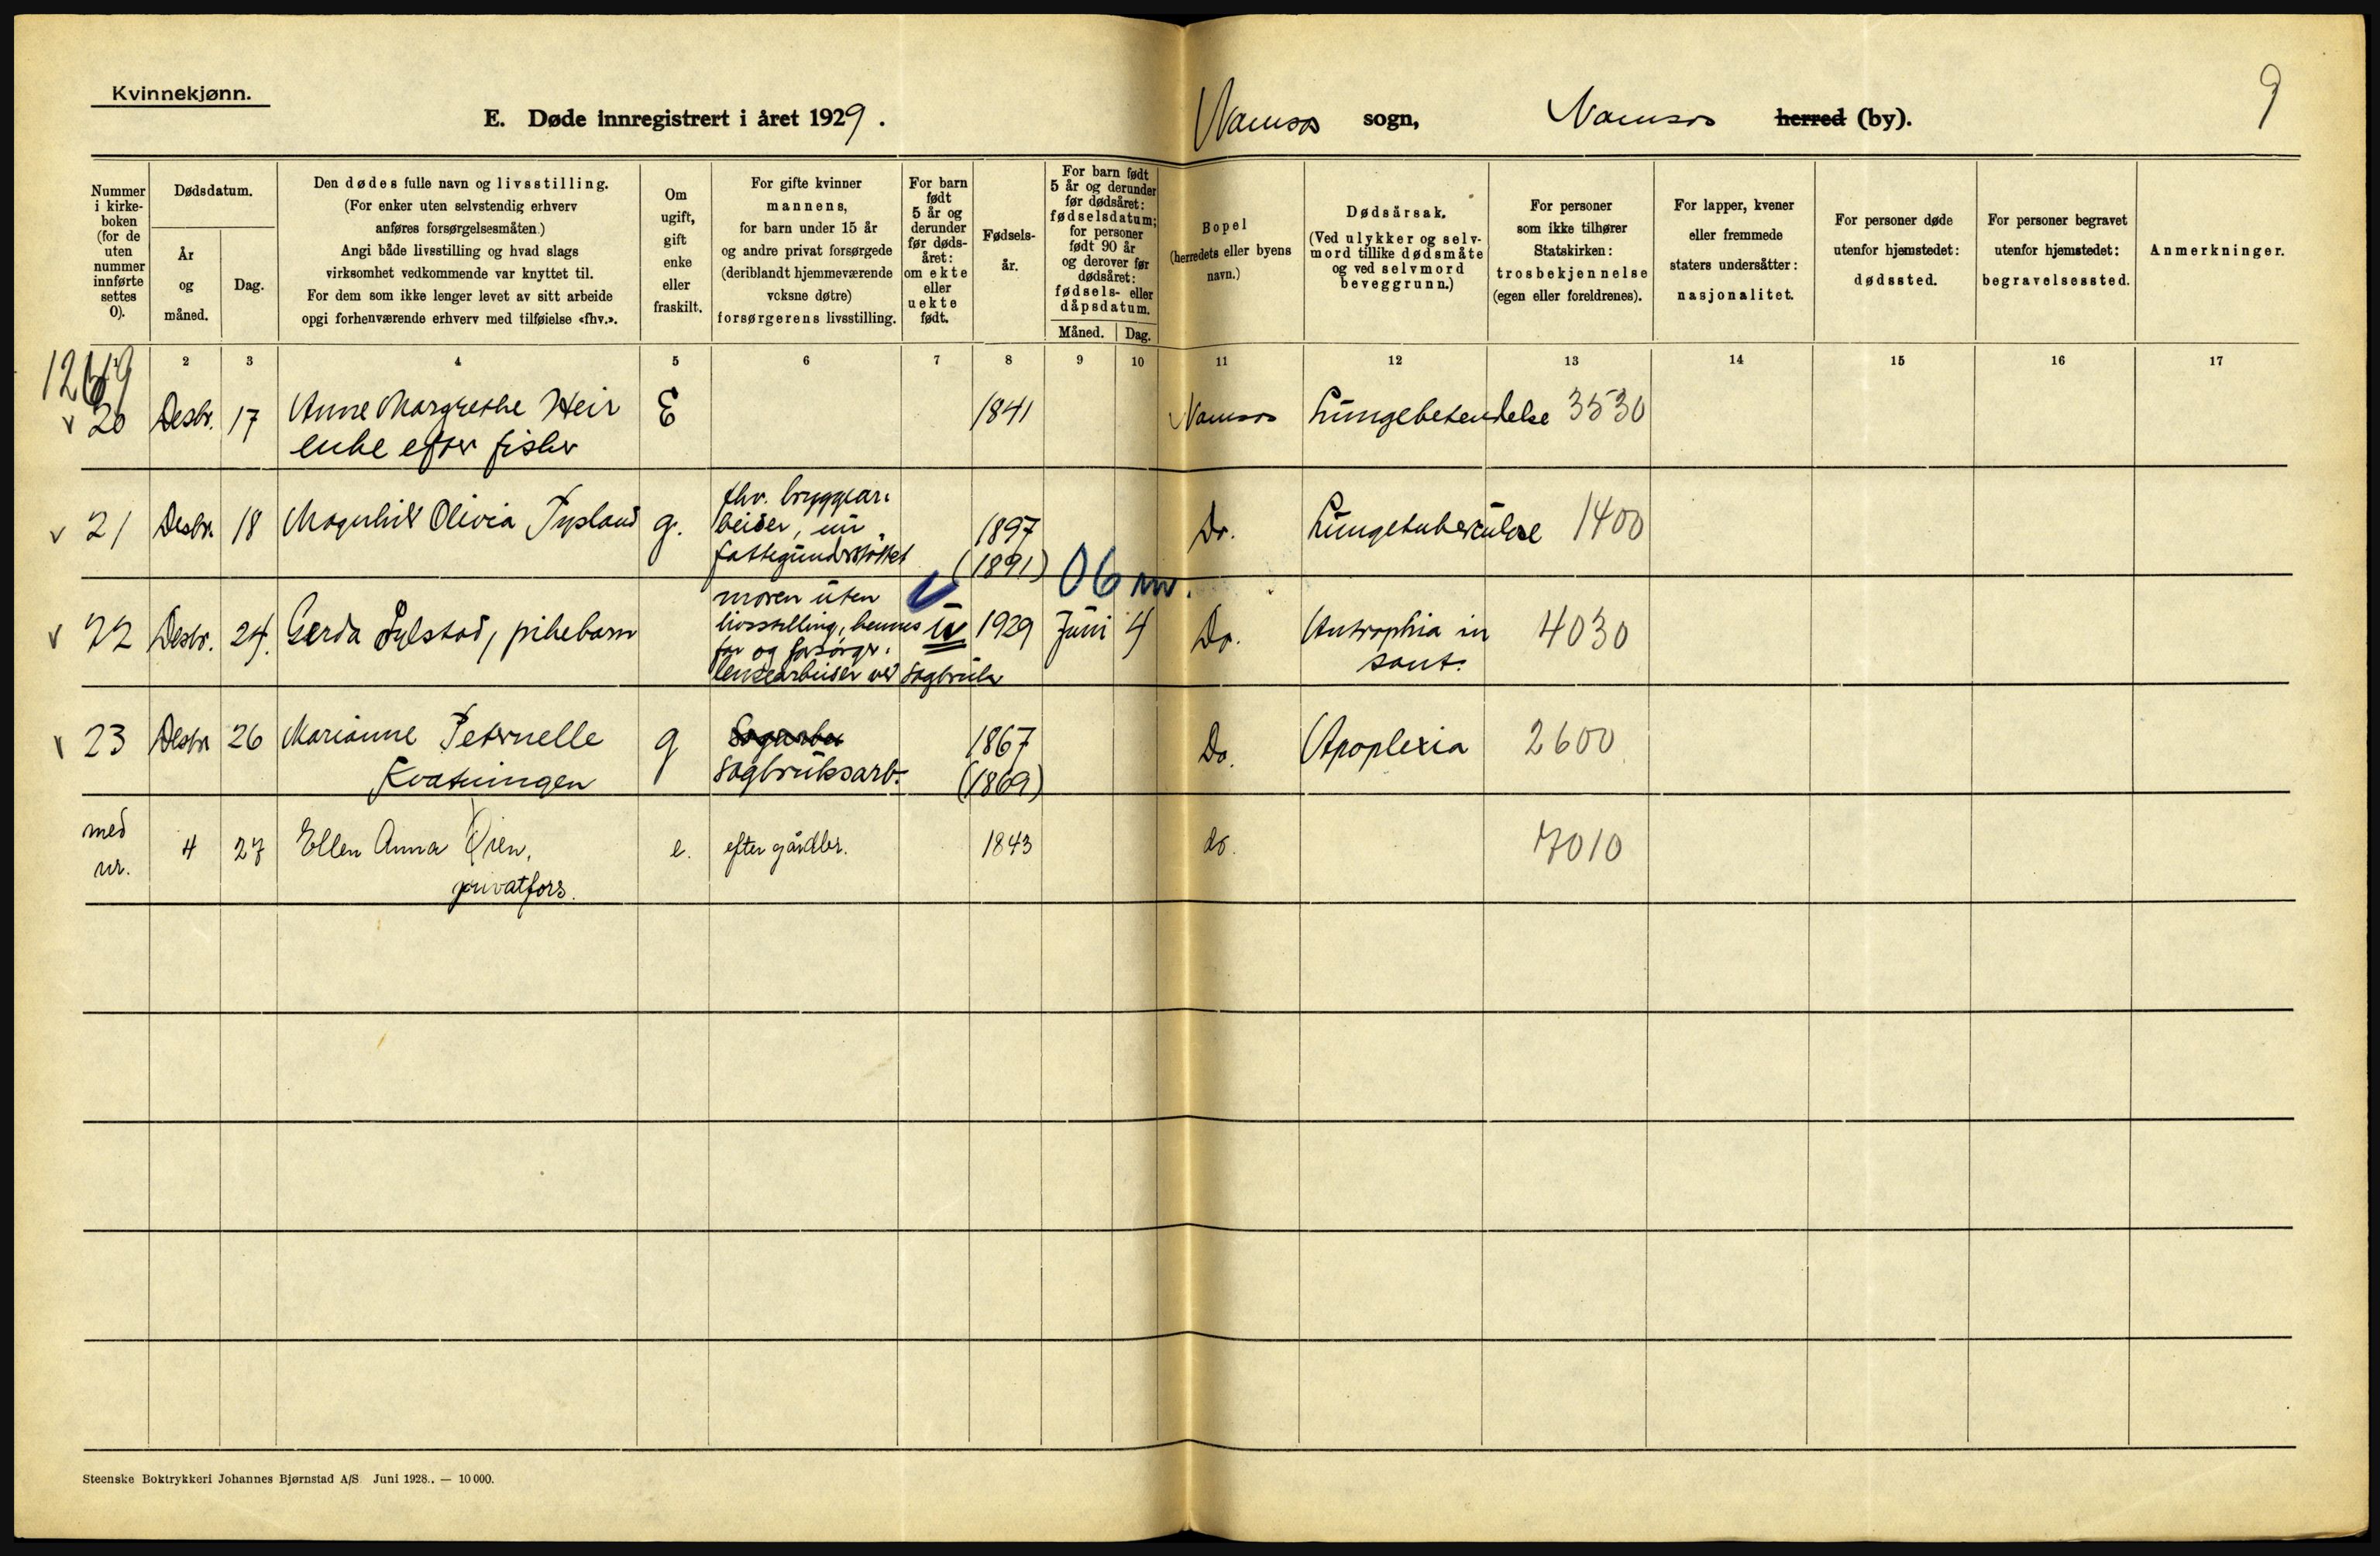 Kvinnekjønn.
E. Døde innregistrert i året 1929.
Namsos sogn, Namsos herred (by).
9
Nummer i kirke-boken (for de uten nummer innførte settes 0).
Dødsdatum.
År og måned.
Dag.
Den dødes fulle navn og livsstilling.
(For enker uten selvstendig erhverv
anføres forsørgelsesmåten.)
Angi både livsstilling og hvad slags
virksomhet vedkommende var knyttet til.
For dem som ikke lenger levet av sitt arbeide
opgi forhenværende erhverv med tilføielse «fhv.».
Om ugift, gift enke eller fraskilt.
For gifte kvinner
mannens,
for barn under 15 år
og andre privat forsørgede
(deriblandt hjemmeværende
voksne døtre)
forsørgerens livsstilling.
For barn født 5 år og derunder før døds-året: om ekte eller uekte født.
Fødsels-år.
For barn født 5 år og derunder før dødsåret: fødselsdatum; for personer født 90 år og derover før dødsåret: fødsels- eller dåpsdatum.
Måned. Dag.
Bopel
(herredets eller byens
navn.)
Dødsårsak.
(Ved ulykker og selv-
mord tillike dødsmåte
og ved selvmord
beveggrunn.)
For personer
som ikke tilhører
Statskirken:
trosbekjennelse
(egen eller foreldrenes).
For lapper, kvener
eller fremmede
staters undersåtter:
nasjonalitet.
For personer døde
utenfor hjemstedet:
dødssted.
For personer begravet
utenfor hjemstedet:
begravelsessted.
Anmerkninger.
2 3 4 5 6 7 8 9 10 11 12 13 14 15 16 17
v 20 Desbr. 17 Anne Margrethe Heir E 1841 Namsos Lungebetendelse 3530
enke efter fisker
fhv. bryggear-
v 21 Desbr. 18 Magnhild Olivia Tysland g. beider, nu 1897 Do. Lungetuberkulose 1400
fattigunderstøttet (1891)
06 m.
moren uten
v 22 Desbr. 24. Gerda Sylstad, pikebarn livsstilling, hennes u 1929 Juni 4 Do. Antrophia in 4030
far og forsørger sant.
lensearbeider ved sagbruk
v 23 Desbr 26 Marianne Peternelle g 1867 Do. Apoplexia 2600
Kvatningen Sagbruksarb. (1869)
med
nr. 4 27 Ellen Anna Øien, e. efter gårdbr. 1843 do. 7010
privatfors.
Steenske Boktrykkeri Johannes Bjørnstad A/S. Juni 1928.. — 10 000.